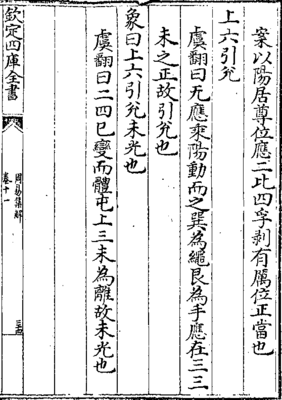 案以陽居尊位應二比四孚剥有厲位正當也
上六引兌
虞翻曰无應乘陽動而之巽為繩艮為手應在三三
未之正故引兌也
象曰上六引兌未光也
虞翻曰二四已變而體屯上三未為離故未光也
欽定四庫全書
周易集解
卷十一